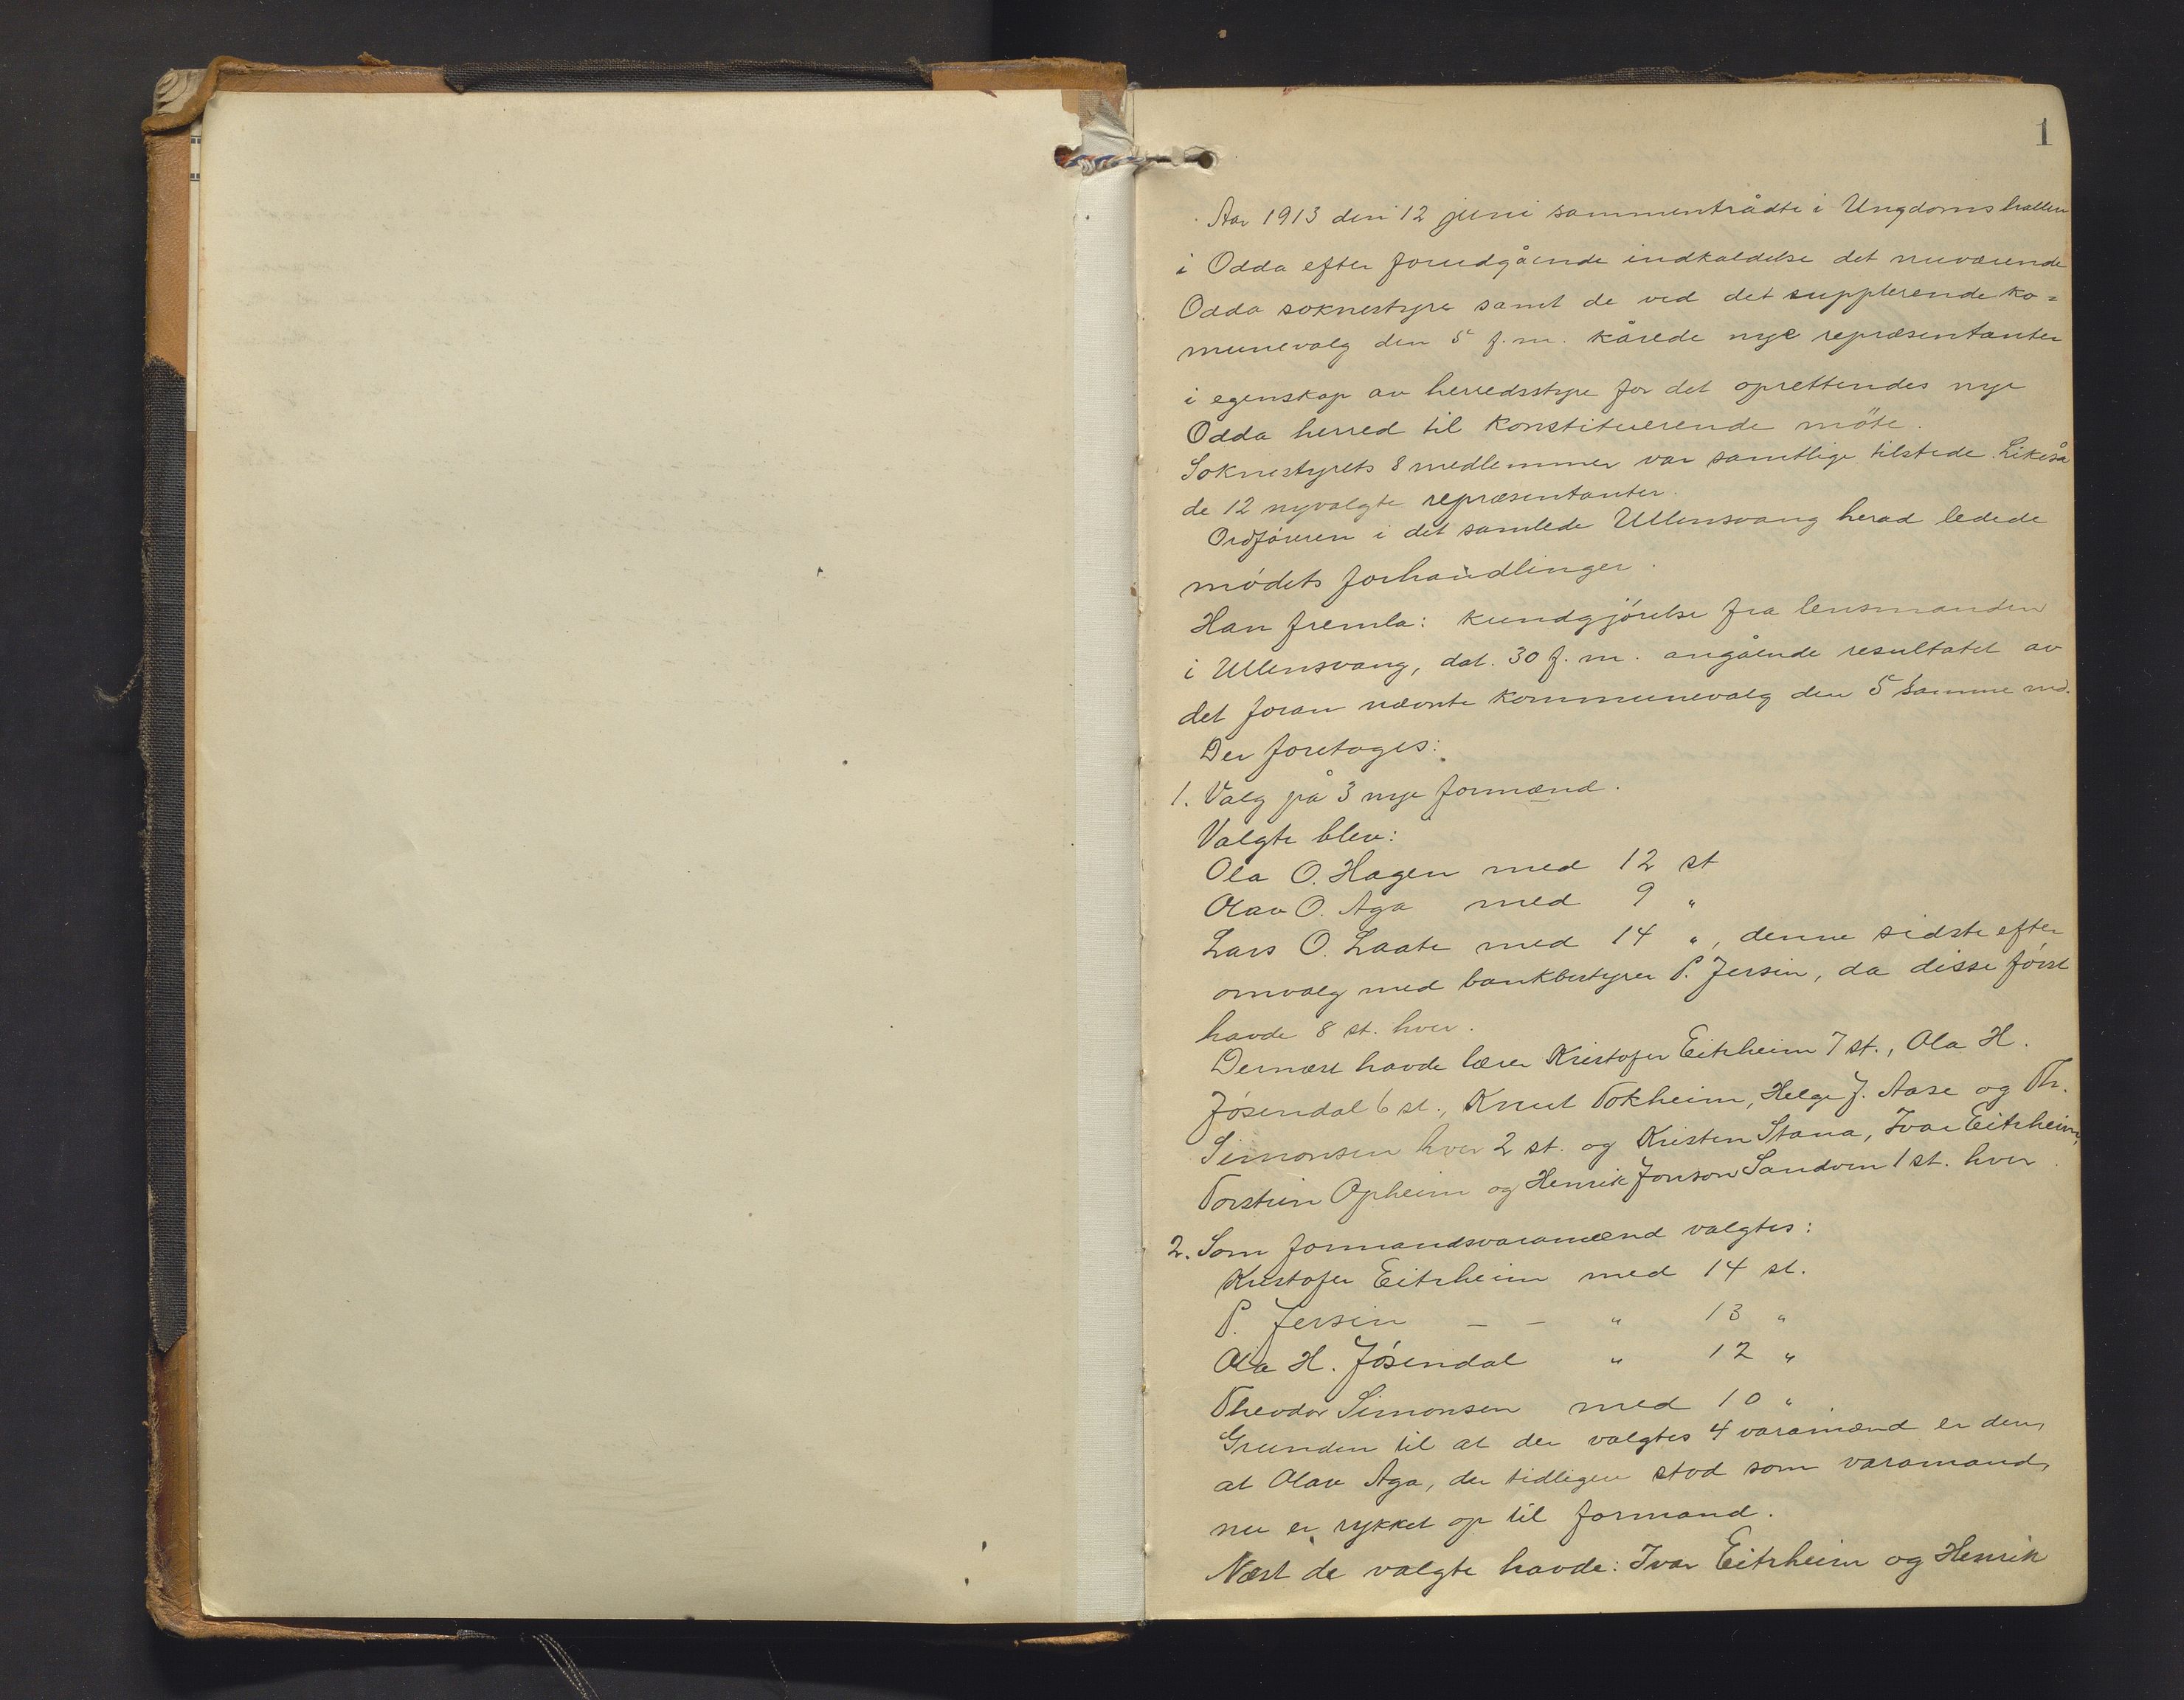 1
Aar 1913 den 12 juni sammentrådte i Ungdomshallen
i Odda efter forudgående indkaldelse det nuværende
Odda soknestyre samt de ved det supplerende ko=
munevalg den 5 f.m. kårede nye repræsentanter
i egenskap av herredsstyre for det oprettendes nye
Odda herred til konstituerende möte.
Soknestyrets 8 medlemmer var samtlige tilstede. Likeså
de 12 nyvalgte repræsentanter.
Ordføreren i det samlede Ullensvang herad ledede
mødets forhandlinger.
Han fremla: kundgjørelse fra lensmanden
i Ullensvang, dat. 30 f.m. angående resultatet av
det foran nævnte kommunevalg den 5 samme md.
Der foretoges:
1. Valg på 3 nye formænd.
Valgte blev:
Ola O. Hagen med 12 st
Olav O. Aga med 9 "
Lars O. Laate med 14 ", denne sidste efter
omvalg med bankbestyrer P. Jersin, da disse først
havde 8 st. hver.
Dernæst havde lærer Kristofer Eitrheim 7 st., Ola H.
Jøsendal 6 st., Knut Tokheim, Helge J. Aase og Th.
Simonsen hver 2 st. og Kristen Stana, Ivar Eitrheim,
Torstein Opheim og Henrik Jonson Sandven 1 st. hver.
2. Som formandsvaramænd valgtes:
Kristofer Eitrheim med 14 st.
P. Jersin — — " 13 "
Ola H. Jøsendal " 12 "
Theodor Simonsen med 10 "
Grunden til at der valgtes 4 varamænd er den,
at Olav Aga, der tidligere stod som varamand,
nu er rykket op til formand.
Næst de valgte havde: Ivar Eitrheim og Henrik